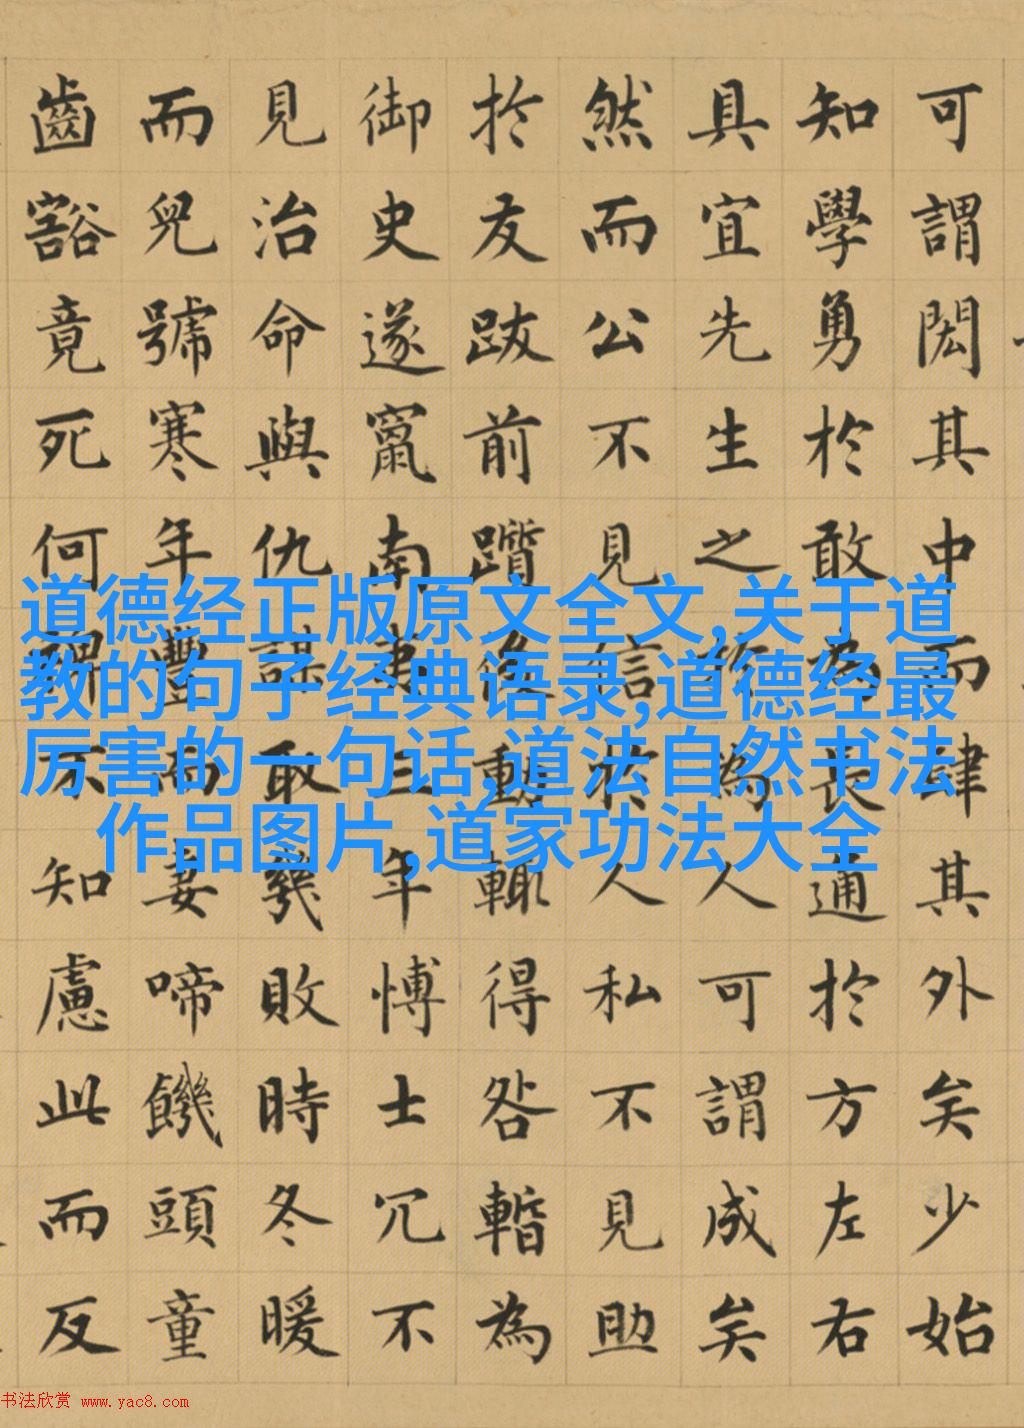 可謂閎其中而肆其外矣少始
知學勇於敢為長通於方左右
具宜先生之於為人可謂成矣
然而公不見信於人私不見助
於友跋前躓後動輒得咎暫為
御史遂竄南夷三年博士冗不
見治命與仇謀取幾敗時冬暖
而兒號寒年豐而妻啼饑頭童
齒豁竟死何裨不知慮此而反
道德经正版原文全文,关于道
教的句子经典语录,道德经最
厉害的一句话,道法自然书法
作品图片,道家功法大全
书法欣赏 www.yac8.com